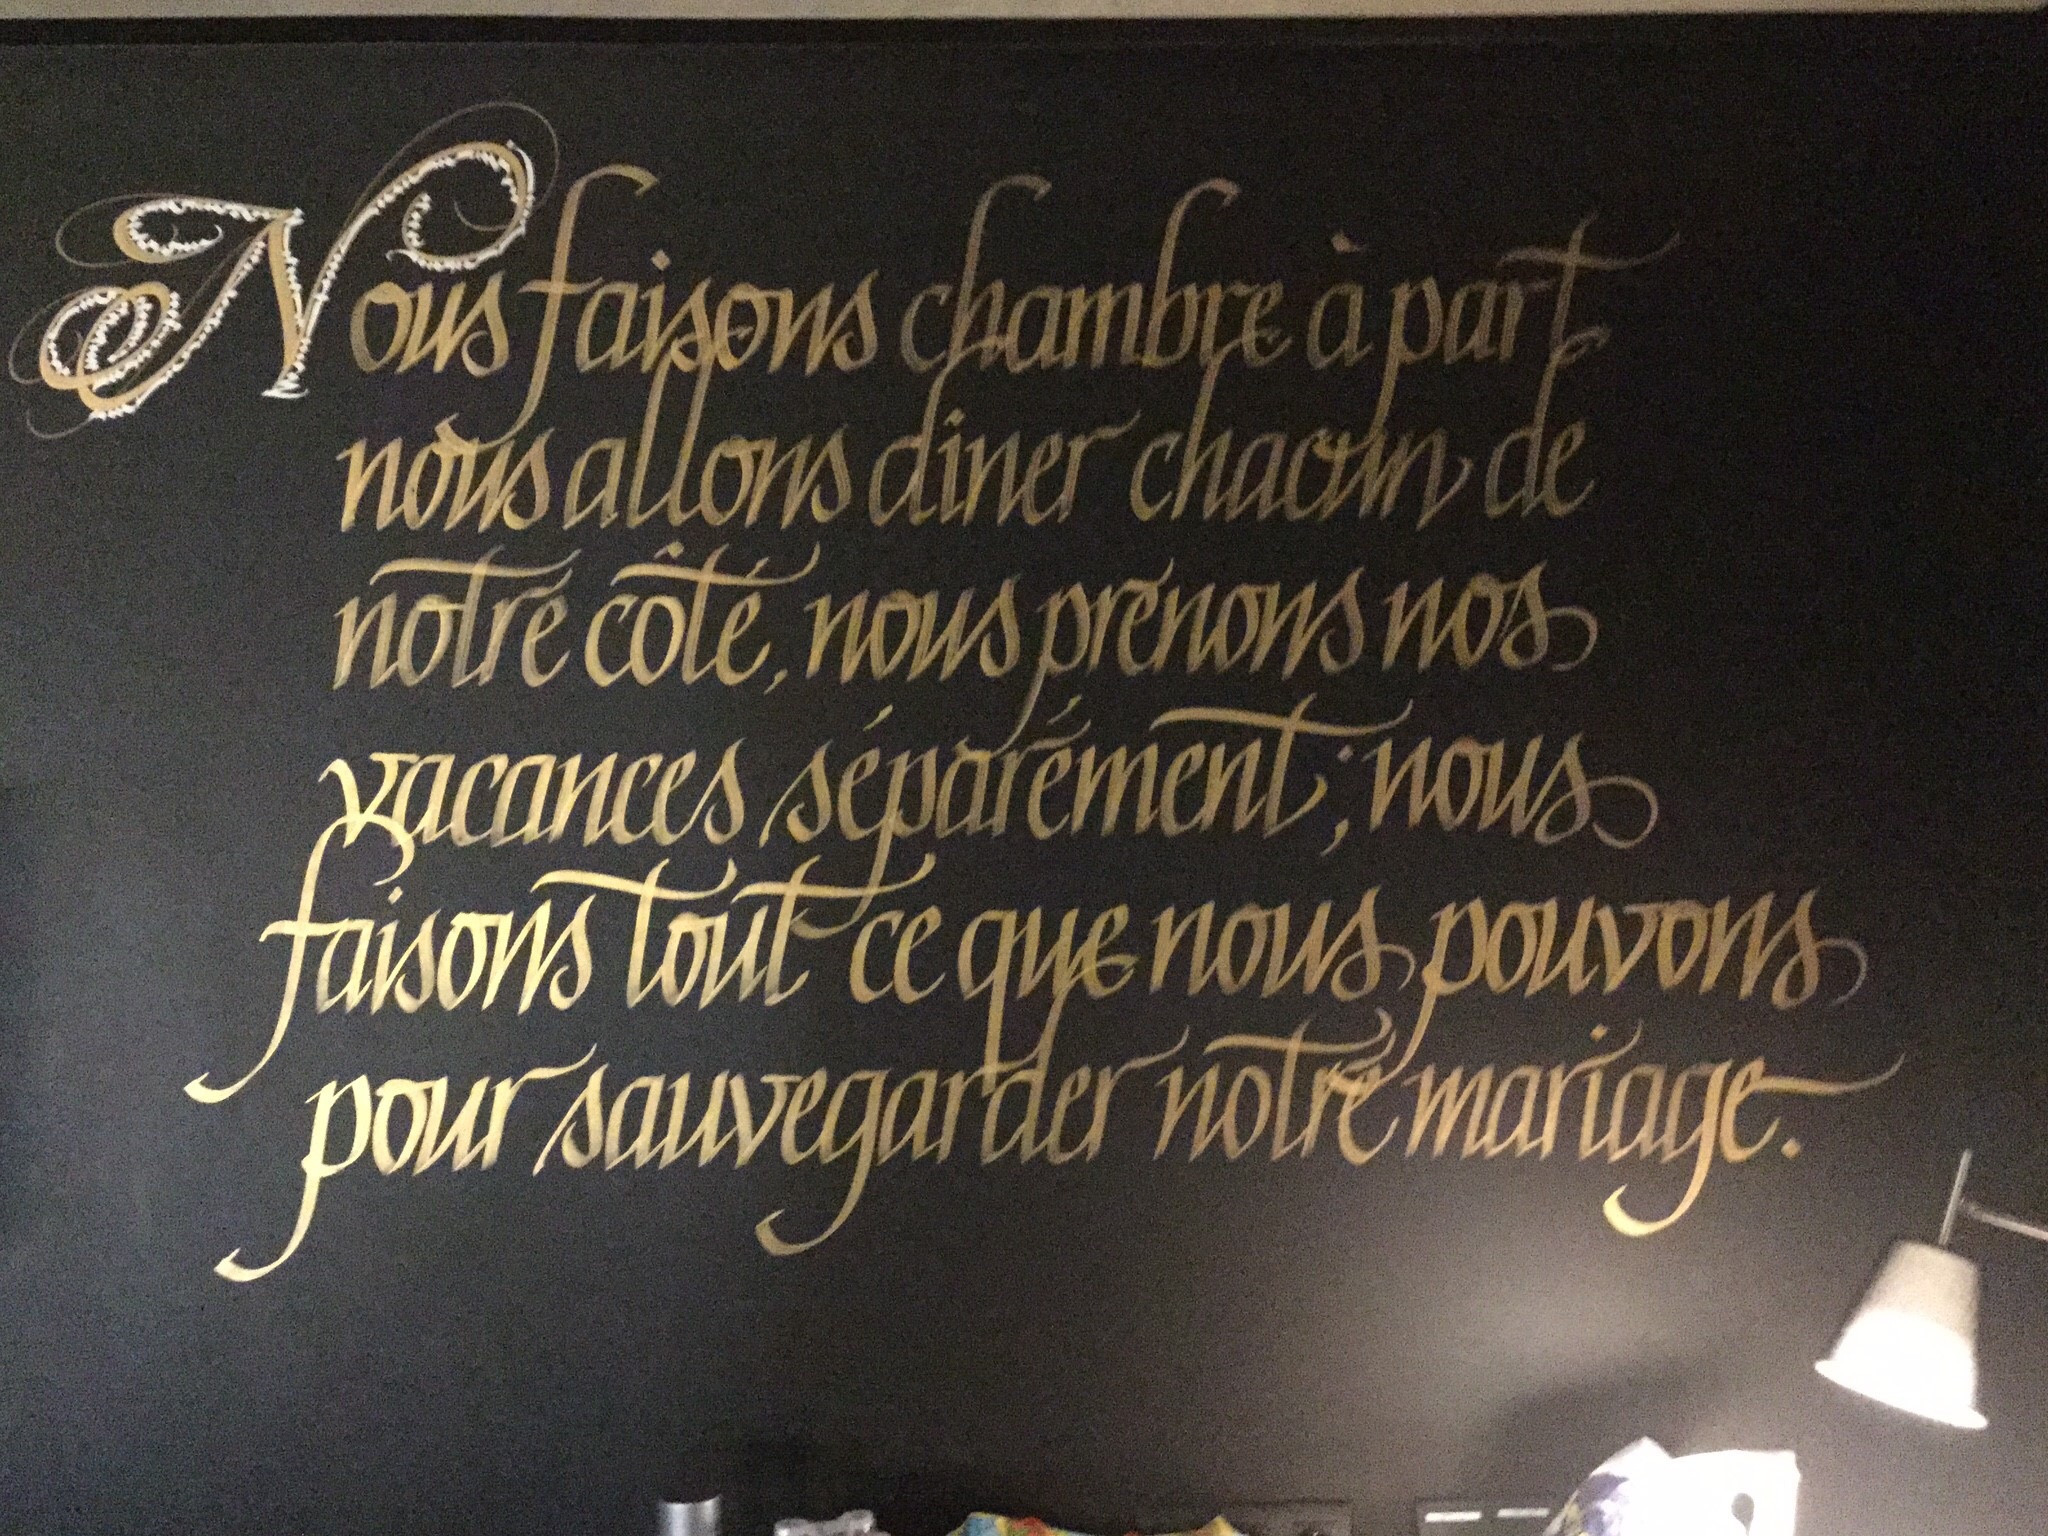 Nous faisons chambre à part
nous allons diner chacun de
notre côté, nous prenons nos
vacances séparément ; nous
faisons tout ce que nous pouvons
pour sauvegarder notre mariage.